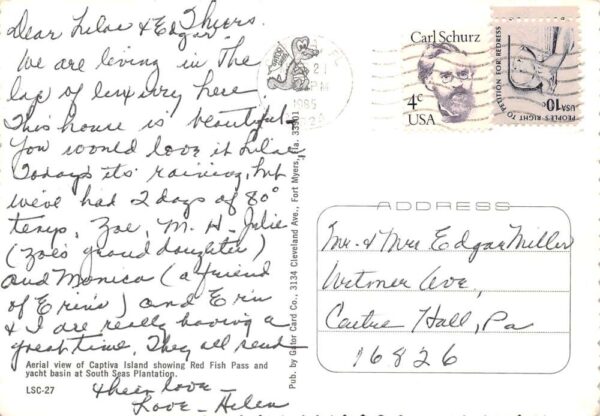 Thurs.
Dear Lilae & Edgar
We are living in the
lap of luxury here
This house is beautiful,
You would love it Lilae
Today its raining, but
we've had 2 days of 80°
temp, Zoe, M. H. Julie
(Zoe's grand daughter)
and Monica (a friend
of Erin's) and Erin
& I are really having a
great time. They all send
their love -
Love - Helen
Aerial view of Captiva Island showing Red Fish Pass and
yacht basin at South Seas Plantation.
LSC-27
Pub. by Gator Card Co., 3134 Cleveland Ave., Fort Myers, Fla. 33901
21
PM
1985
Carl Schurz
4c
USA
PEOPLE'S RIGHT TO PETITION FOR REDRESS
USA 10c
ADDRESS
Mr. & Mrs Edgar Miller
Witmer Ave,
Centre Hall, Pa
16826